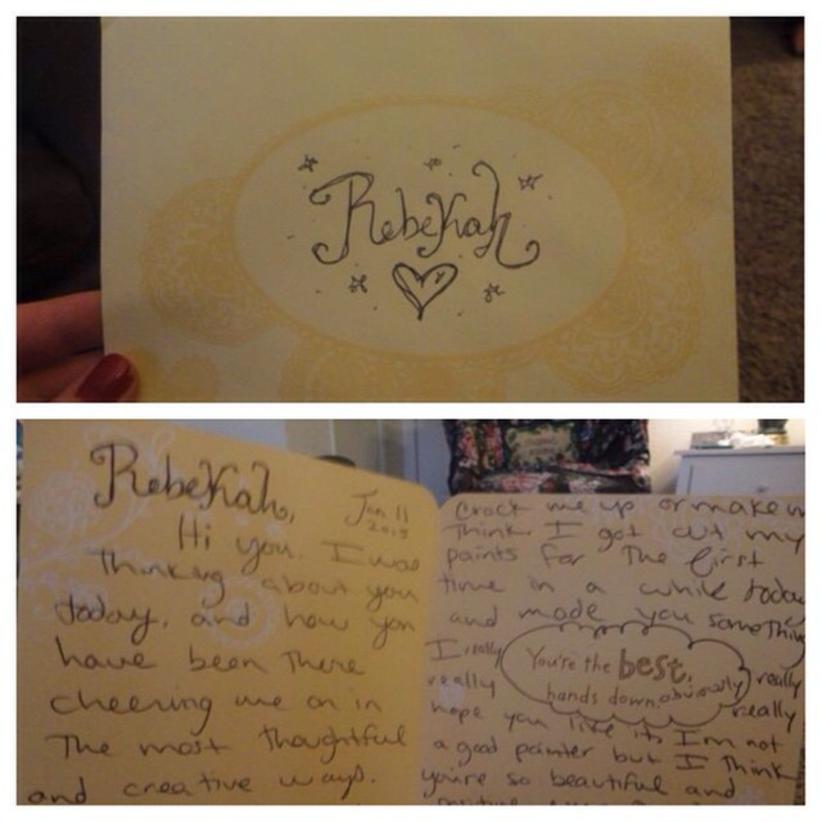 Rebekah
Rebekah,
Jan 11
2015
Hi you. I was
thinking about you
today, and how you
have been there
cheering me on in
the most thoughtful
and creative ways.
crack me up or make m
think. I got out my
paints for the first
time in a while today
and made you something
I really
really
You're the best,
hands down, obviously
really
really
hope you like it. I'm not
a good painter but I think
you're so beautiful and